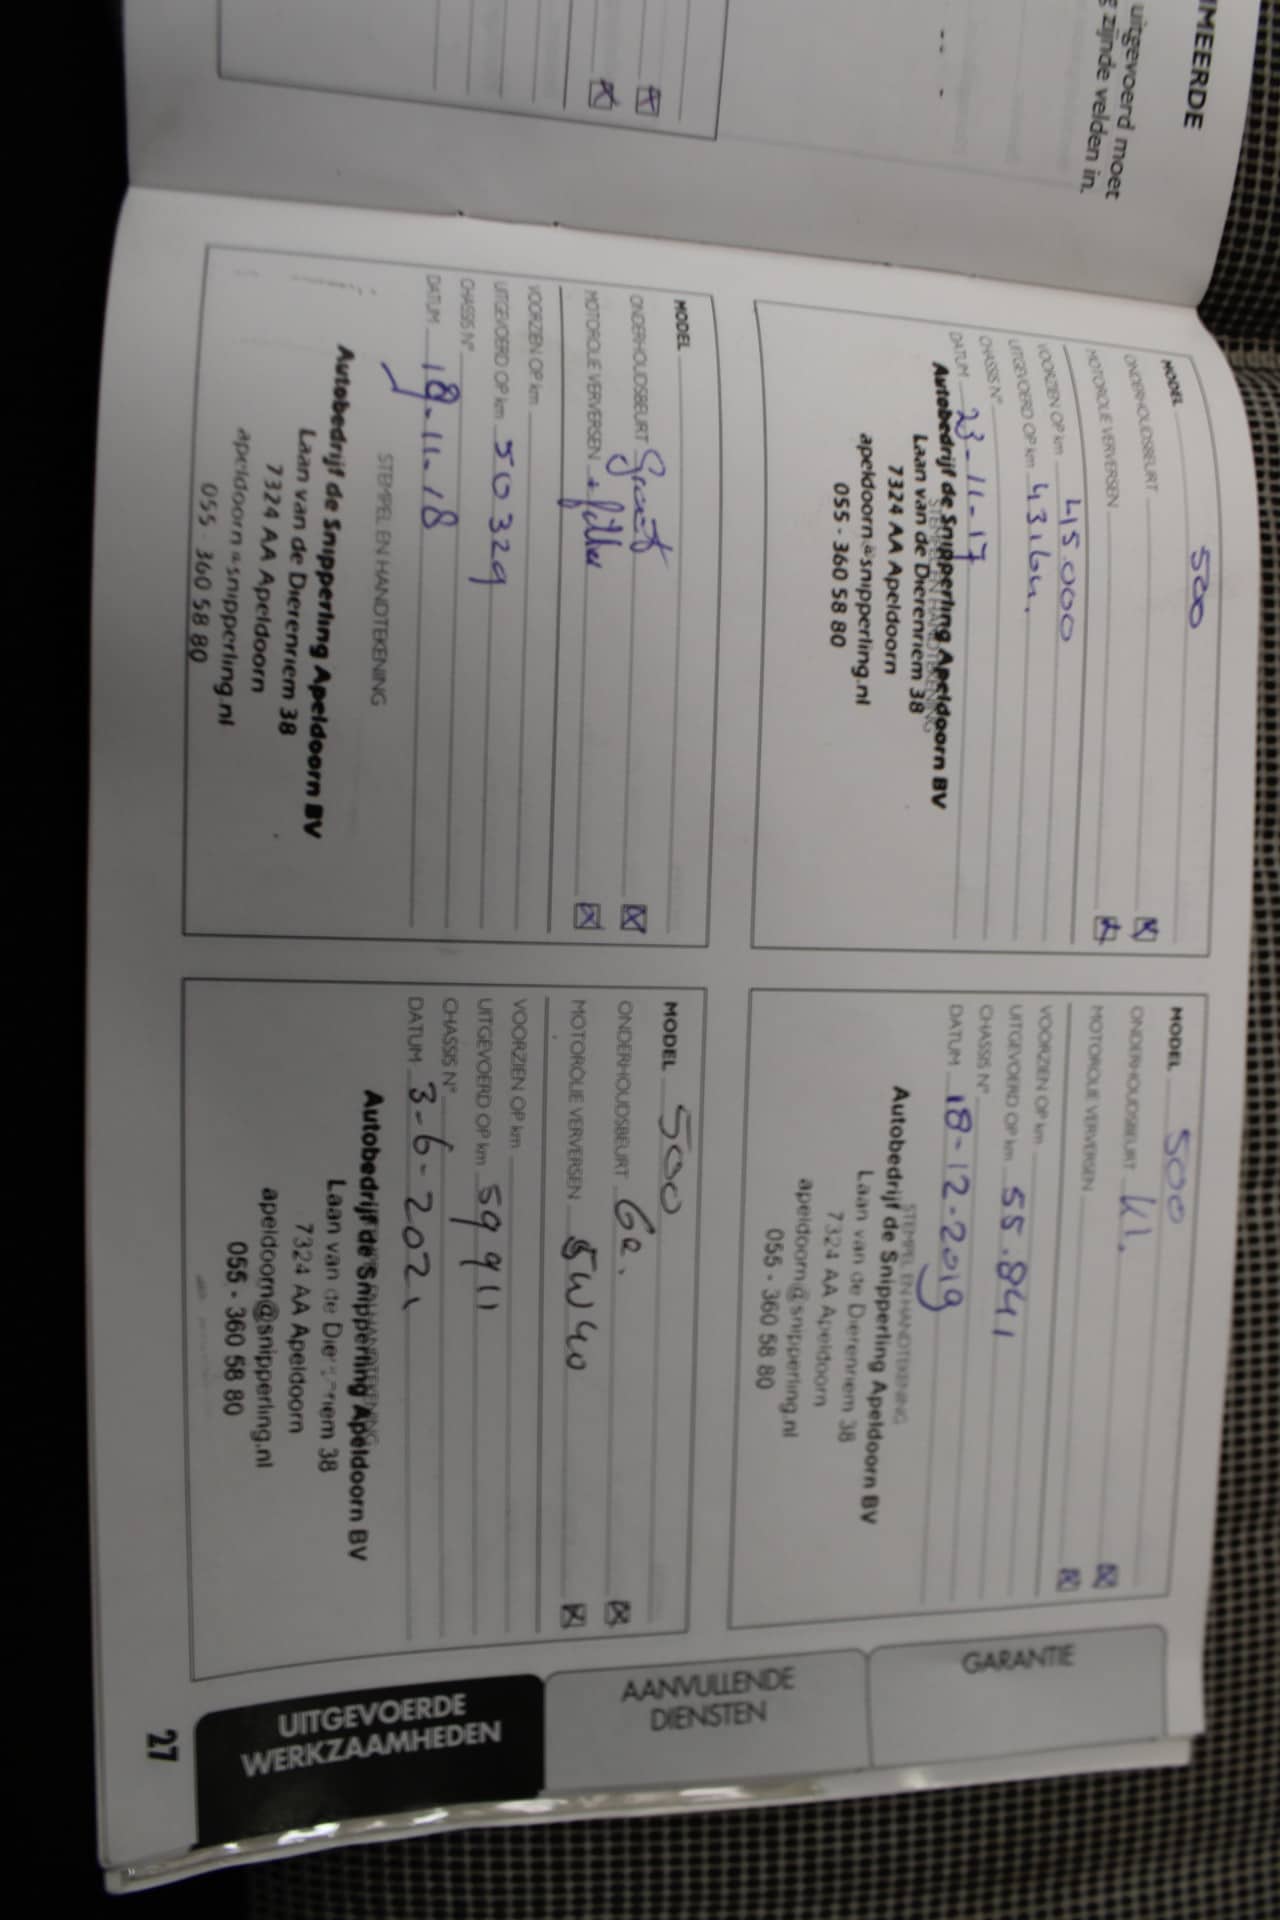 MEERDE
uitgevoerd moet
zijnde velden in.
MODEL 500
ONDERHOUDSBEURT
MOTOROLIE VERVERSEN
VOORZIEN OP km 45.000
UITGEVOERD OP km 43164.
CHASSIS N°
DATUM 23-11-17
STEMPEL EN HANDTEKENING
Autobedrijf de Snipperling Apeldoorn BV
Laan van de Dierenriem 38
7324 AA Apeldoorn
apeldoorn@snipperling.nl
055 - 360 58 80
MODEL 500
ONDERHOUDSBEURT Kl.
MOTOROLIE VERVERSEN
VOORZIEN OP km
UITGEVOERD OP km 55.841
CHASSIS N°
DATUM 18-12-2019
STEMPEL EN HANDTEKENING
Autobedrijf de Snipperling Apeldoorn BV
Laan van de Dierenriem 38
7324 AA Apeldoorn
apeldoorn@snipperling.nl
055 - 360 58 80
MODEL
ONDERHOUDSBEURT Groot
MOTOROLIE VERVERSEN + filter
VOORZIEN OP km
UITGEVOERD OP km 50329
CHASSIS N°
DATUM 19-11-18
STEMPEL EN HANDTEKENING
Autobedrijf de Snipperling Apeldoorn BV
Laan van de Dierenriem 38
7324 AA Apeldoorn
apeldoorn@snipperling.nl
055 - 360 58 80
MODEL 500
ONDERHOUDSBEURT
MOTOROLIE VERVERSEN 5W40
VOORZIEN OP km
UITGEVOERD OP km 59911
CHASSIS N°
DATUM 3-6-2021
STEMPEL EN HANDTEKENING
Autobedrijf de Snipperling Apeldoorn BV
Laan van de Dierenriem 38
7324 AA Apeldoorn
apeldoorn@snipperling.nl
055 - 360 58 80
GARANTIE
AANVULLENDE
DIENSTEN
UITGEVOERDE
WERKZAAMHEDEN
27